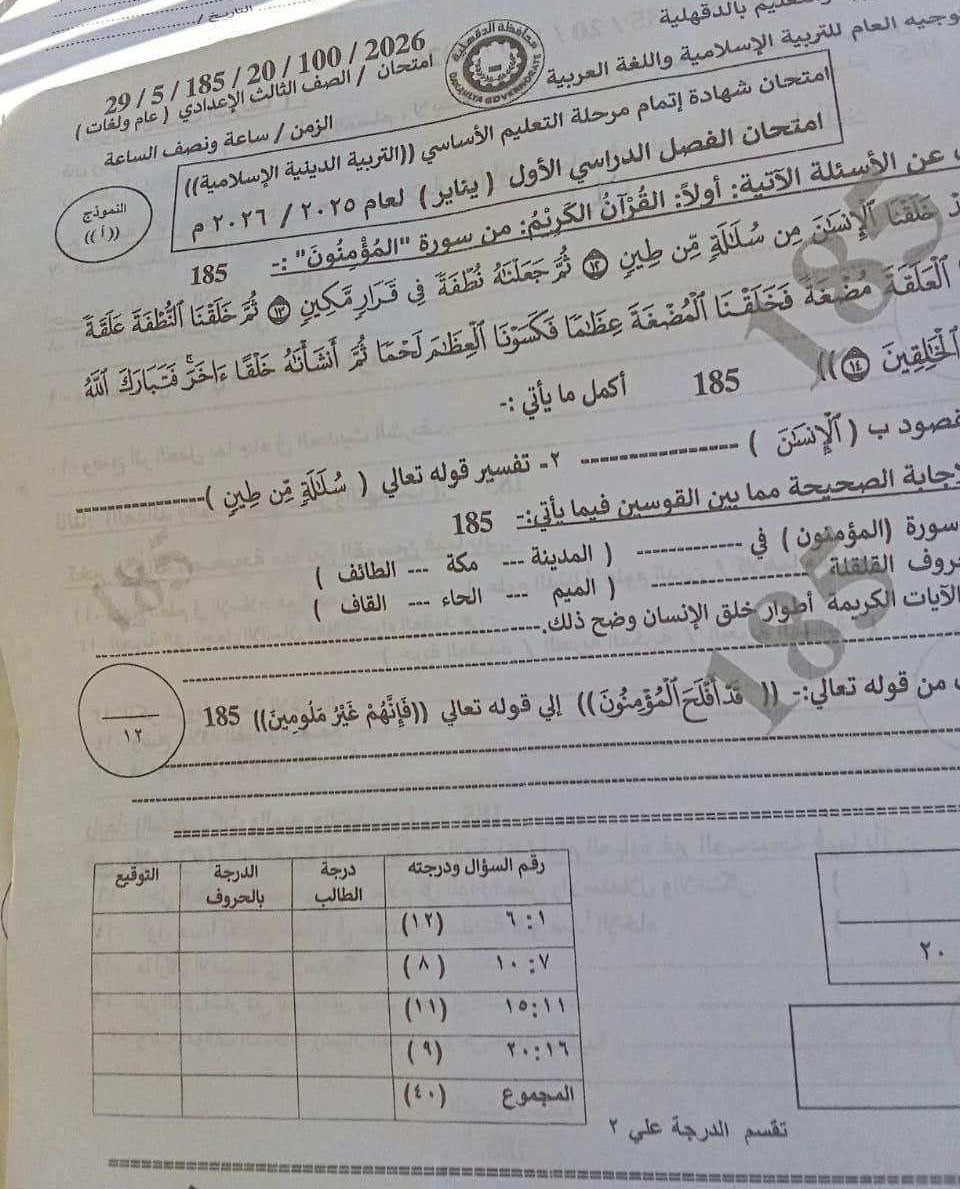 التاريخ /
بالدقهلية
وجيه العام للتربية الإسلامية واللغة العربية
محافظة الدقهلية
DAKAHLIA GOVERNORATE
29 / 5 / 185 / 20 / 100 / 2026
امتحان / الصف الثالث الإعدادي ( عام ولغات )
الزمن / ساعة ونصف الساعة
امتحان شهادة إتمام مرحلة التعليم الأساسي ((التربية الدينية الإسلامية))
امتحان الفصل الدراسي الأول ( يناير ) لعام ٢٠٢٥ / ٢٠٢٦ م
النموذج
(( أ ))
عن الأسئلة الآتية: أولاً: القُرْآنُ الكَرِيْمُ: من سورة "المُؤْمِنُونَ" :- 185
خَلَقْنَا ٱلْإِنسَٰنَ مِن سُلَٰلَةٍ مِّن طِينٍ ١٢ ثُمَّ جَعَلْنَٰهُ نُطْفَةً فِي قَرَارٍ مَّكِينٍ ١٣ ثُمَّ خَلَقْنَا ٱلنُّطْفَةَ عَلَقَةً
ٱلْعَلَقَةَ مُضْغَةً فَخَلَقْنَا ٱلْمُضْغَةَ عِظَٰمًا فَكَسَوْنَا ٱلْعِظَٰمَ لَحْمًا ثُمَّ أَنشَأْنَٰهُ خَلْقًا ءَاخَرَ ۚ فَتَبَارَكَ ٱللَّهُ
ٱلْخَٰلِقِينَ ١٤ )) 185 أكمل ما يأتي :-
قصود ب ( ٱلْإِنسَٰنَ ) ---------------- ٢- تفسير قوله تعالي ( سُلَٰلَةٍ مِّن طِينٍ )----------------
جابة الصحيحة مما بين القوسين فيما يأتي:- 185
سورة (المؤمنون ) في ------------- ( المدينة --- مكة --- الطائف )
روف القلقلة ---------------- ( الميم --- الحاء --- القاف )
الآيات الكريمة أطوار خلق الإنسان وضح ذلك.
من قوله تعالي:- (( قَدْ أَفْلَحَ ٱلْمُؤْمِنُونَ)) إلي قوله تعالي ((فَإِنَّهُمْ غَيْرُ مَلُومِينَ)) 185
١٢
رقم السؤال ودرجته درجة الطالب الدرجة بالحروف التوقيع
١ : ٦ (١٢)
٧: ١٠ ( ٨ )
١١: ١٥ (١١)
١٦: ٢٠ ( ٩ )
المجموع (٤٠)
٢٠
تقسم الدرجة علي ٢
185
185
185